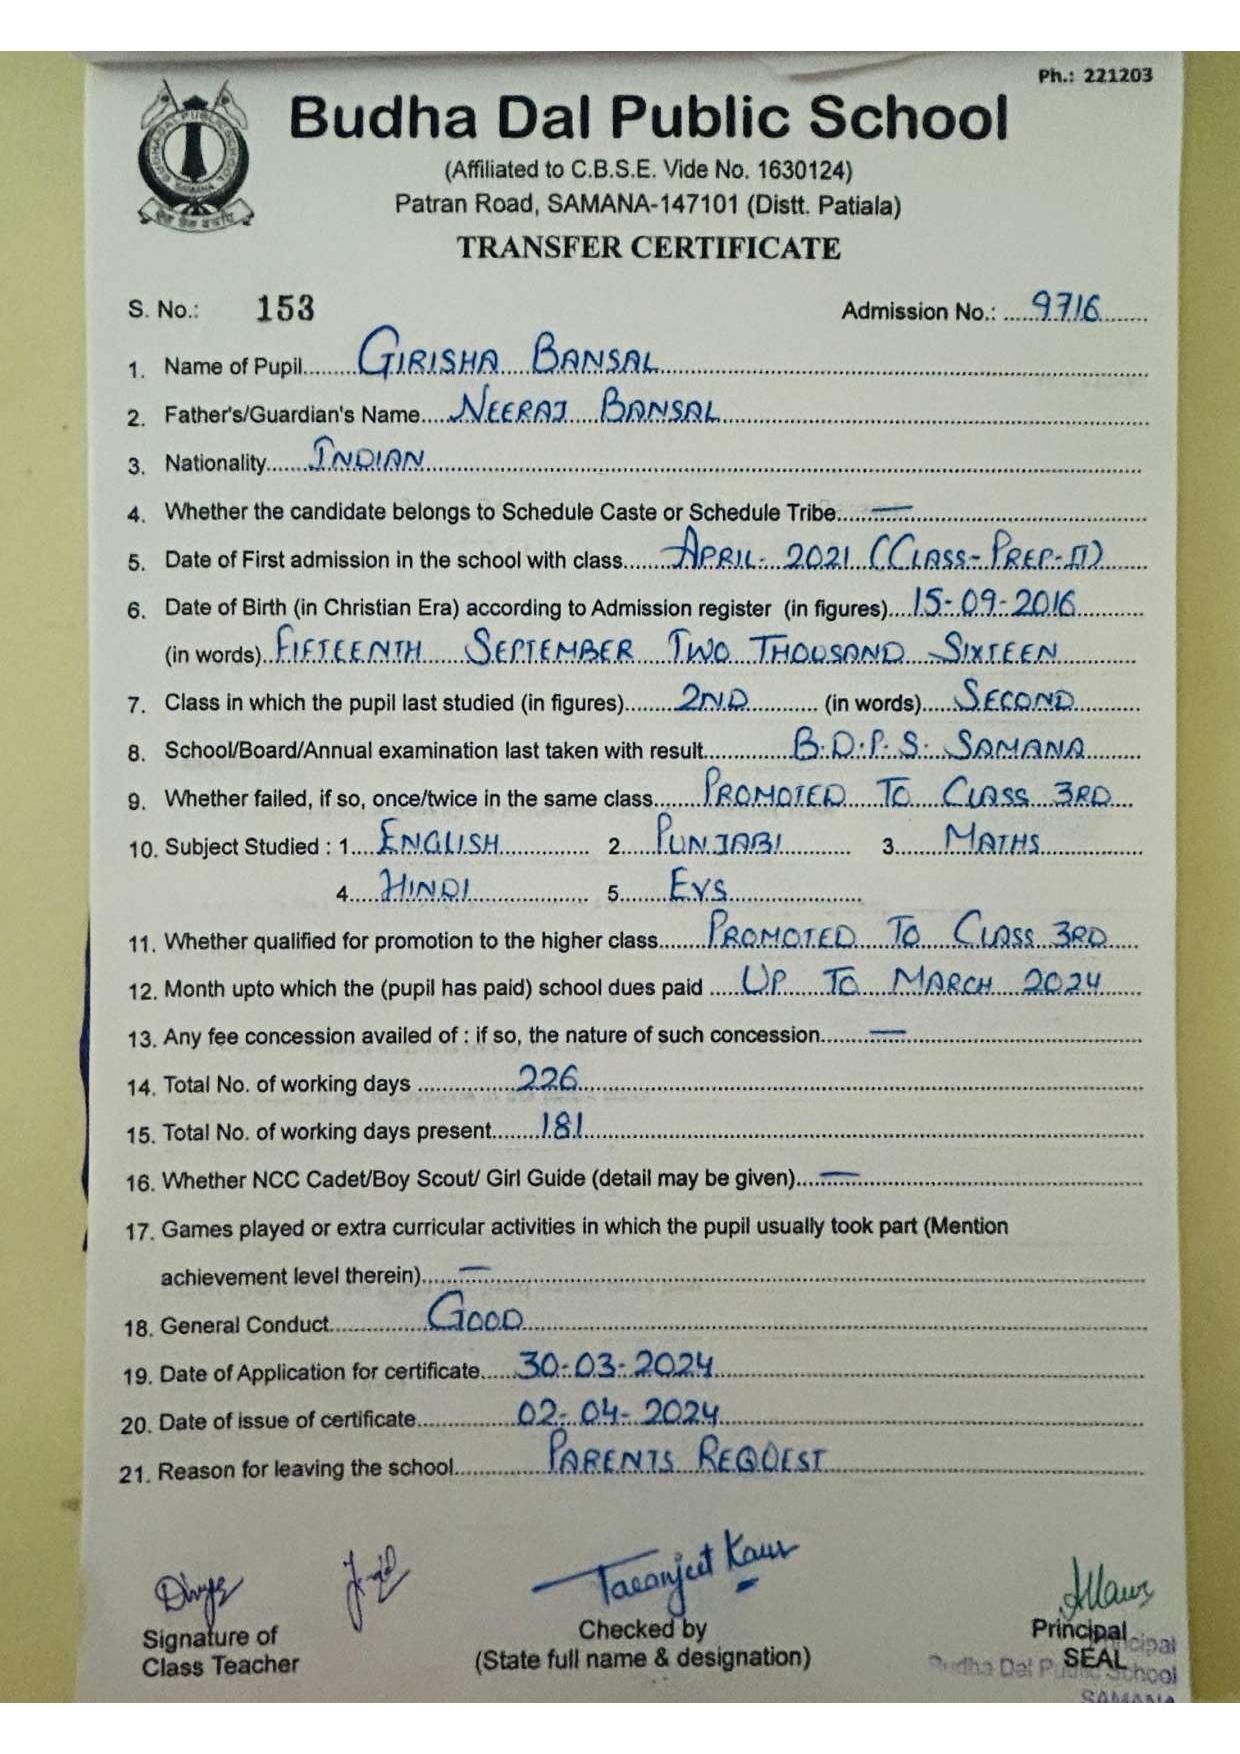 Ph.: 221203
Budha Dal Public School
(Affiliated to C.B.S.E. Vide No. 1630124)
Patran Road, SAMANA-147101 (Distt. Patiala)
TRANSFER CERTIFICATE
S. No.: 153 Admission No.: 9716
1. Name of Pupil GIRISHA BANSAL
2. Father's/Guardian's Name NEERAJ BANSAL
3. Nationality INDIAN
4. Whether the candidate belongs to Schedule Caste or Schedule Tribe —
5. Date of First admission in the school with class APRIL- 2021 (CLASS- PREP-II)
6. Date of Birth (in Christian Era) according to Admission register (in figures) 15-09-2016
(in words) FIFTEENTH SEPTEMBER TWO THOUSAND SIXTEEN
7. Class in which the pupil last studied (in figures) 2ND (in words) SECOND
8. School/Board/Annual examination last taken with result B.D.P.S. SAMANA
9. Whether failed, if so, once/twice in the same class PROMOTED TO CLASS 3RD
10. Subject Studied : 1. ENGLISH 2. PUNJABI 3. MATHS
4. HINDI 5. EVS
11. Whether qualified for promotion to the higher class PROMOTED TO CLASS 3RD
12. Month upto which the (pupil has paid) school dues paid UP TO MARCH 2024
13. Any fee concession availed of : if so, the nature of such concession —
14. Total No. of working days 226
15. Total No. of working days present 181
16. Whether NCC Cadet/Boy Scout/ Girl Guide (detail may be given) —
17. Games played or extra curricular activities in which the pupil usually took part (Mention
achievement level therein) —
18. General Conduct GOOD
19. Date of Application for certificate 30-03-2024
20. Date of issue of certificate 02-04-2024
21. Reason for leaving the school PARENTS REQUEST
Taranjeet Kaur
Signature of Checked by Principal
Class Teacher (State full name & designation) SEAL
Principal
Budha Dal Public School
SAMANA